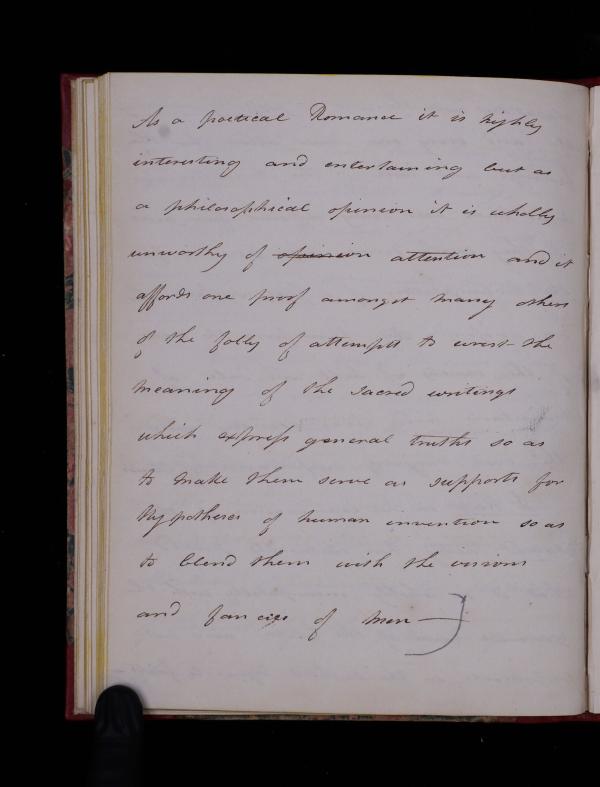 As a poetical Romance it is highly
interesting and entertaining but as
a philosophical opinion it is wholly
unworthy of opinion attention and it
affords one proof amongst many others
of the folly of attempts to wrest the
meaning of the sacred writings
which express general truths so as
to make them serve as supports for
Hypotheses of human invention so as
to blend them with the visions
and fancies of Men —